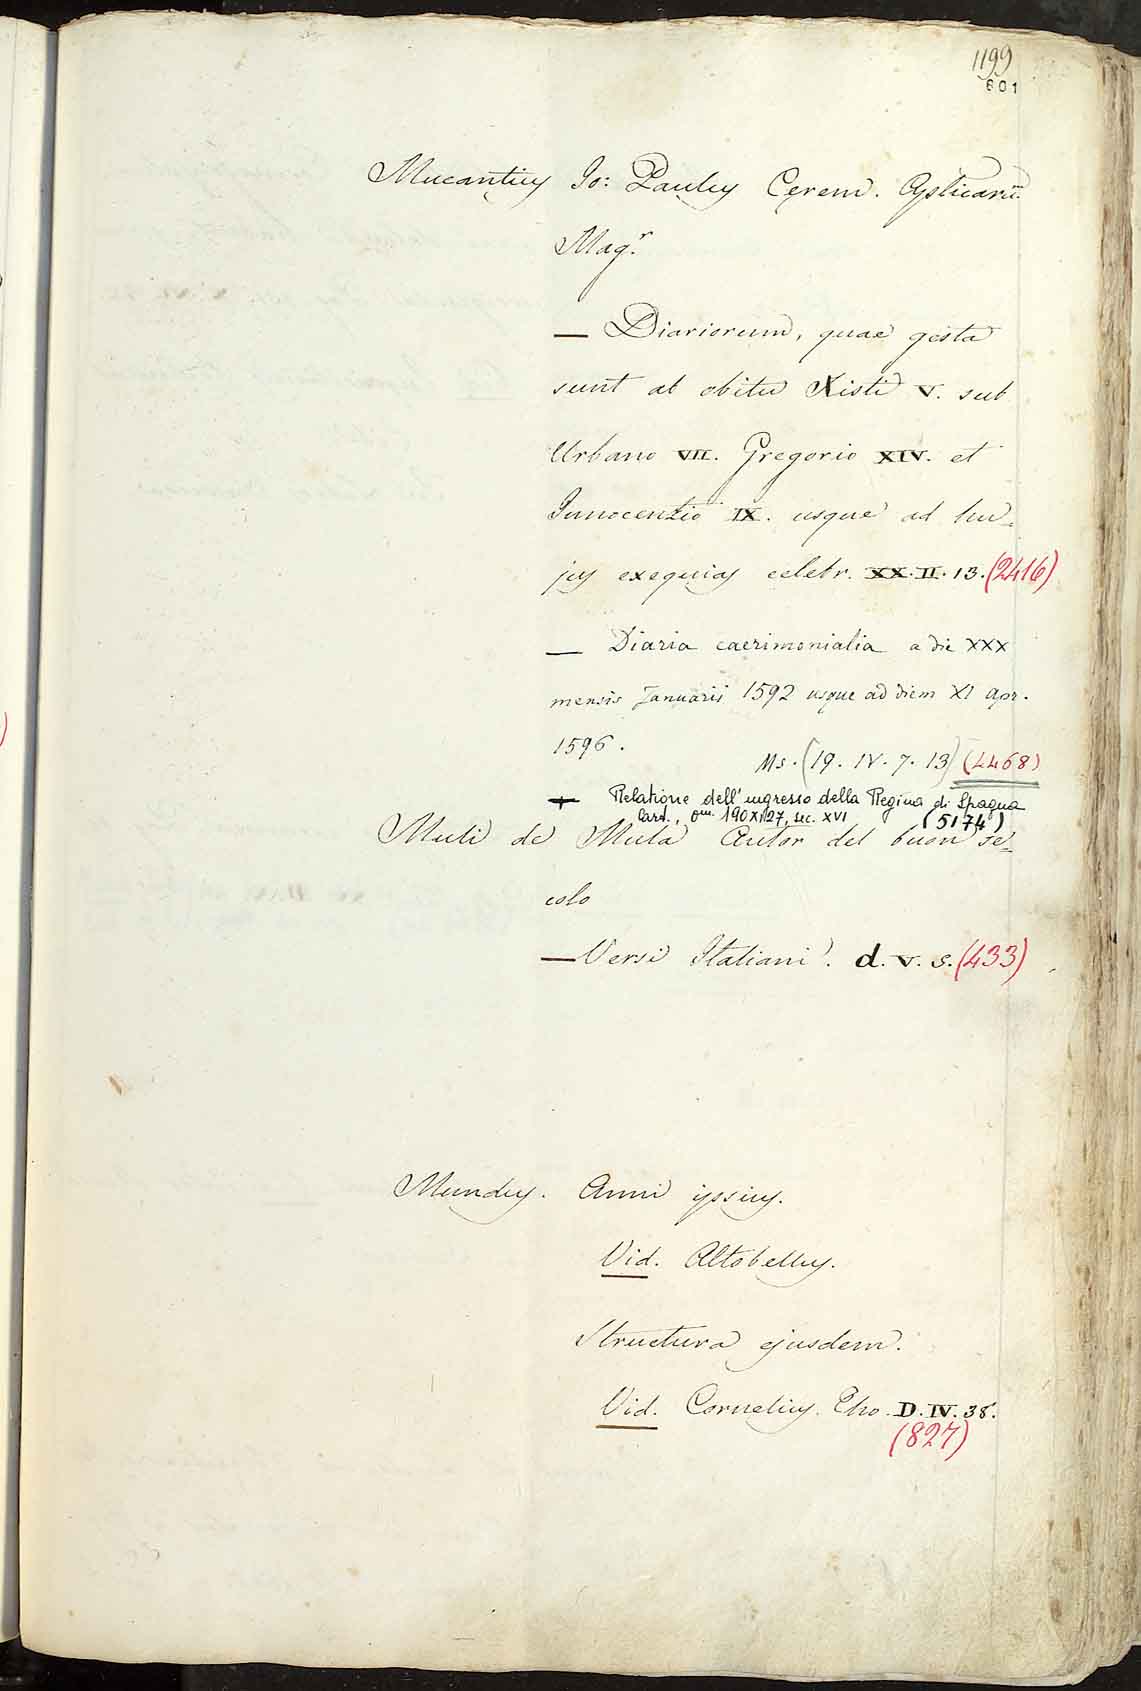 1199
601
Mucantius Jo: Paulus Cerem. Aplicarū
Mag.r
— Diariorum, quae gesta
sunt ab obitu Xisti V. sub
Urbano VII. Gregorio XIV. et
Innocenzio IX. usque ad hu-
jus exequias celebr. XX. II. 13. (2416)
— Diaria caerimonialia a die XXX
mensis Januarii 1592 usque ad diem XI apr.
1596.
Ms. (19. IV. 7. 13) (4468)
+ Relatione dell'ingresso della Regina di Spagna
Card., 190 XI 27, sec. XVI (5174)
Muti de Muta Autor del buon se-
colo
— Versi Italiani. d. V. S. (433)
Mundus. Anni ipsius.
Vid. Altobellus.
Structura ejusdem.
Vid. Cornelius. Tho. D. IV. 38.
(827)